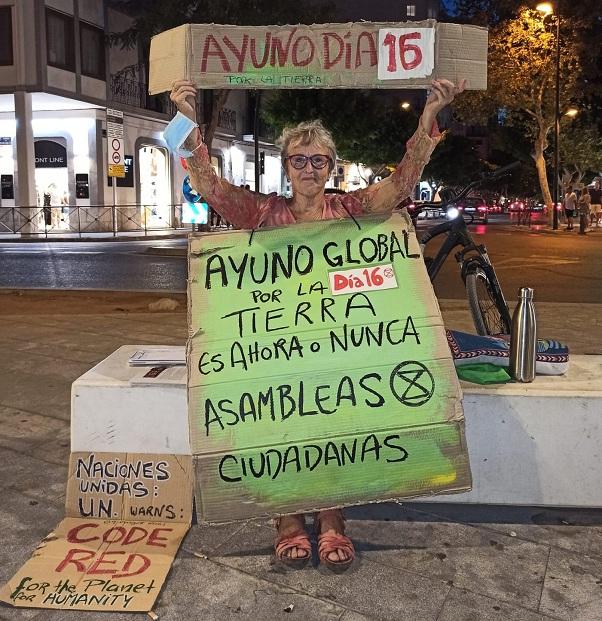 AYUNO DÍA 16
POR LA TIERRA
ONT LINE
AYUNO GLOBAL
POR LA Día 16
TIERRA
ES AHORA O NUNCA
ASAMBLEAS
CIUDADANAS
NACIONES
UNIDAS:
U.N. WARNS:
CODE
RED
for the Planet
for HUMANITY